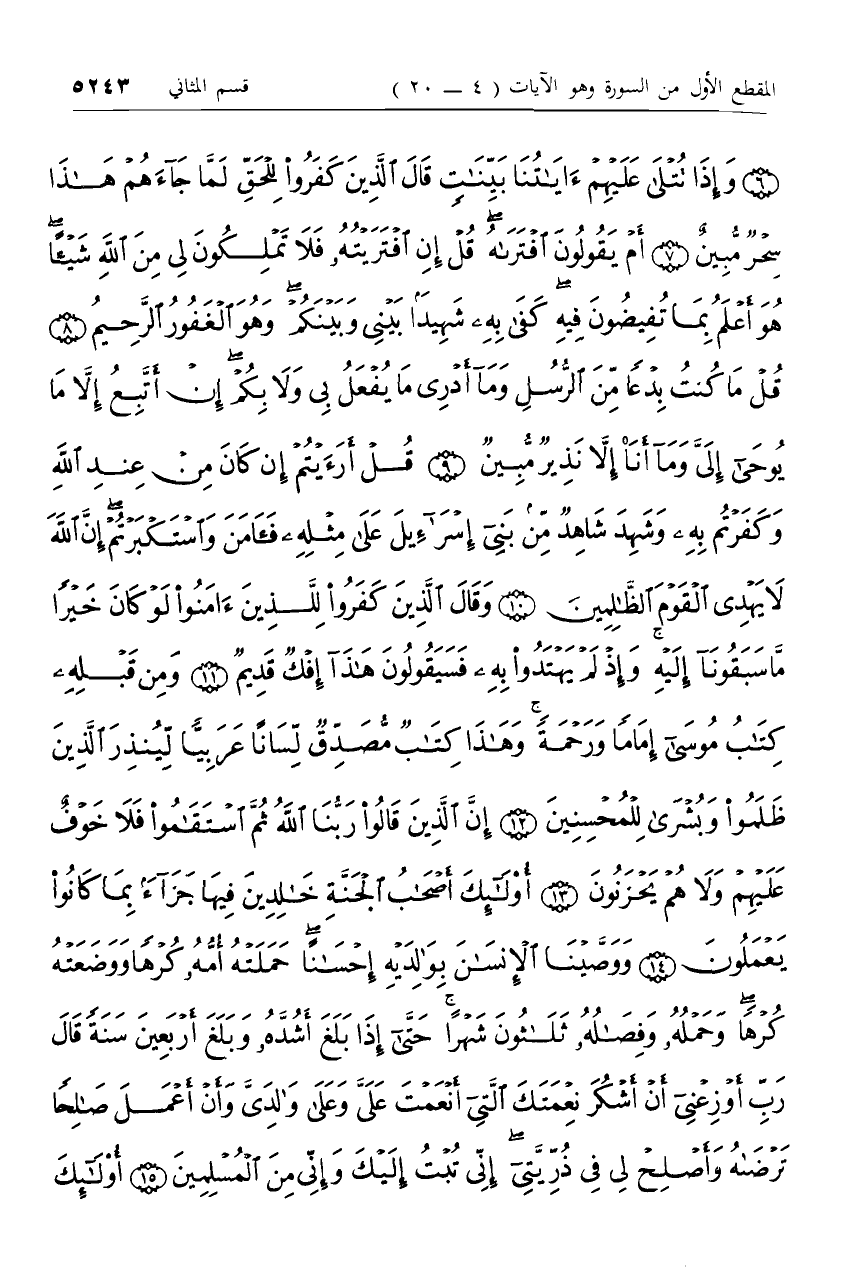 المقطع الأول من السورة وهو الآيات ( ٤ ــ ٢٠ ) قسم المثاني ٥٢٤٣
٦ وَإِذَا تُتْلَىٰ عَلَيْهِمْ ءَايَـٰتُنَا بَيِّنَـٰتٍ قَالَ ٱلَّذِينَ كَفَرُوا۟ لِلْحَقِّ لَمَّا جَآءَهُمْ هَـٰذَا
سِحْرٌ مُّبِينٌ ٧ أَمْ يَقُولُونَ ٱفْتَرَىٰهُ ۖ قُلْ إِنِ ٱفْتَرَيْتُهُۥ فَلَا تَمْلِكُونَ لِى مِنَ ٱللَّهِ شَيْـًٔا ۖ
هُوَ أَعْلَمُ بِمَا تُفِيضُونَ فِيهِ ۖ كَفَىٰ بِهِۦ شَهِيدًۢا بَيْنِى وَبَيْنَكُمْ ۖ وَهُوَ ٱلْغَفُورُ ٱلرَّحِيمُ ٨
قُلْ مَا كُنتُ بِدْعًا مِّنَ ٱلرُّسُلِ وَمَآ أَدْرِى مَا يُفْعَلُ بِى وَلَا بِكُمْ ۖ إِنْ أَتَّبِعُ إِلَّا مَا
يُوحَىٰٓ إِلَىَّ وَمَآ أَنَا۠ إِلَّا نَذِيرٌ مُّبِينٌ ٩ قُلْ أَرَءَيْتُمْ إِن كَانَ مِنْ عِندِ ٱللَّهِ
وَكَفَرْتُم بِهِۦ وَشَهِدَ شَاهِدٌ مِّنۢ بَنِىٓ إِسْرَٰٓءِيلَ عَلَىٰ مِثْلِهِۦ فَـَٔامَنَ وَٱسْتَكْبَرْتُمْ ۖ إِنَّ ٱللَّهَ
لَا يَهْدِى ٱلْقَوْمَ ٱلظَّـٰلِمِينَ ١٠ وَقَالَ ٱلَّذِينَ كَفَرُوا۟ لِلَّذِينَ ءَامَنُوا۟ لَوْ كَانَ خَيْرًا
مَّا سَبَقُونَآ إِلَيْهِ ۚ وَإِذْ لَمْ يَهْتَدُوا۟ بِهِۦ فَسَيَقُولُونَ هَـٰذَآ إِفْكٌ قَدِيمٌ ١١ وَمِن قَبْلِهِۦ
كِتَـٰبُ مُوسَىٰٓ إِمَامًا وَرَحْمَةً ۚ وَهَـٰذَا كِتَـٰبٌ مُّصَدِّقٌ لِّسَانًا عَرَبِيًّا لِّيُنذِرَ ٱلَّذِينَ
ظَلَمُوا۟ وَبُشْرَىٰ لِلْمُحْسِنِينَ ١٢ إِنَّ ٱلَّذِينَ قَالُوا۟ رَبُّنَا ٱللَّهُ ثُمَّ ٱسْتَقَـٰمُوا۟ فَلَا خَوْفٌ
عَلَيْهِمْ وَلَا هُمْ يَحْزَنُونَ ١٣ أُو۟لَـٰٓئِكَ أَصْحَـٰبُ ٱلْجَنَّةِ خَـٰلِدِينَ فِيهَا جَزَآءًۢ بِمَا كَانُوا۟
يَعْمَلُونَ ١٤ وَوَصَّيْنَا ٱلْإِنسَـٰنَ بِوَٰلِدَيْهِ إِحْسَـٰنًا ۖ حَمَلَتْهُ أُمُّهُۥ كُرْهًا وَوَضَعَتْهُ
كُرْهًا ۖ وَحَمْلُهُۥ وَفِصَـٰلُهُۥ ثَلَـٰثُونَ شَهْرًا ۚ حَتَّىٰٓ إِذَا بَلَغَ أَشُدَّهُۥ وَبَلَغَ أَرْبَعِينَ سَنَةً قَالَ
رَبِّ أَوْزِعْنِىٓ أَنْ أَشْكُرَ نِعْمَتَكَ ٱلَّتِىٓ أَنْعَمْتَ عَلَىَّ وَعَلَىٰ وَٰلِدَىَّ وَأَنْ أَعْمَلَ صَـٰلِحًا
تَرْضَىٰهُ وَأَصْلِحْ لِى فِى ذُرِّيَّتِىٓ ۖ إِنِّى تُبْتُ إِلَيْكَ وَإِنِّى مِنَ ٱلْمُسْلِمِينَ ١٥ أُو۟لَـٰٓئِكَ